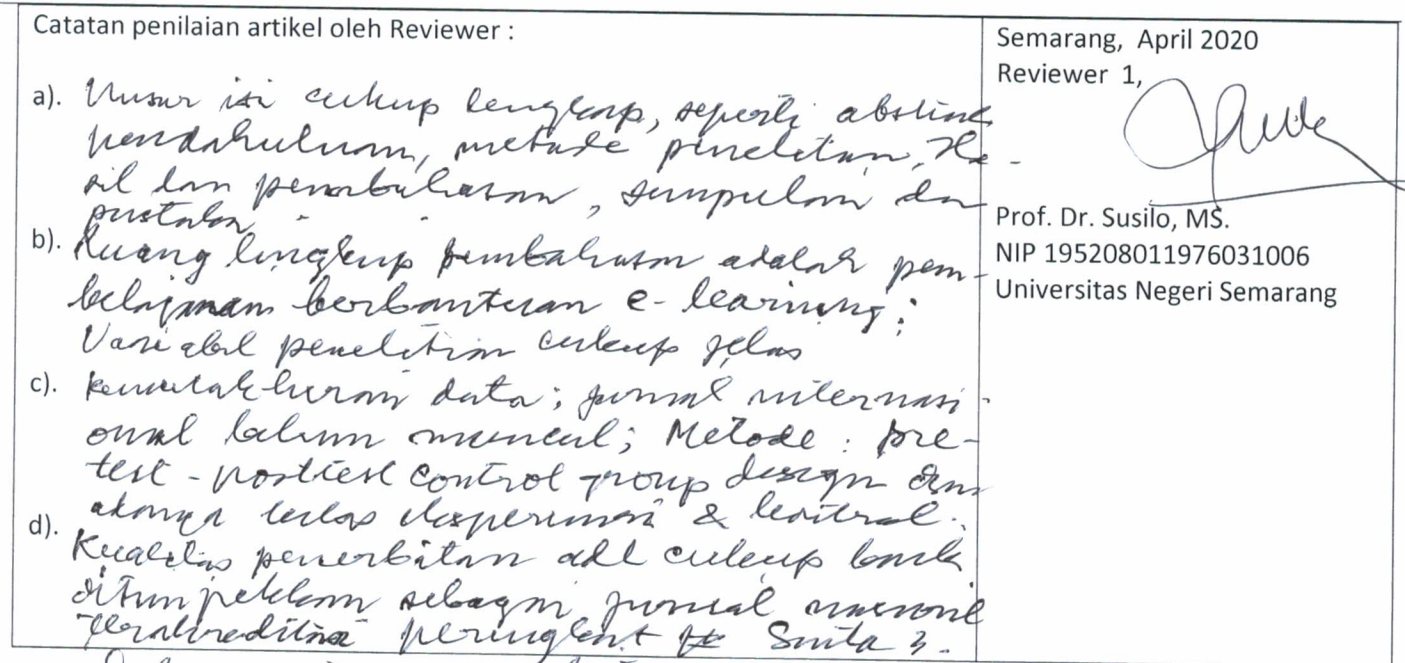 Catatan penilaian artikel oleh Reviewer :
a). Unsur isi cukup lengkap, seperti abstrak
pendahuluan, metode penelitian, Ha-
sil dan pembahasan, simpulan dan
pustaka.
b). Ruang lingkup pembahasan adalah pem-
belajaran berbantuan e-learning;
Variabel penelitian cukup jelas
c). Kemutakhiran data; jurnal internasi-
onal belum muncul; Metode : pre-
test - posttest control group design
kelas eksperimen & kontrol.
d). Kualitas penerbitan adl cukup baik
ditunjukkan sebagai jurnal nasional
terakreditasi peringkat Sinta 3.
Semarang, April 2020
Reviewer 1,
Prof. Dr. Susilo, MS.
NIP 195208011976031006
Universitas Negeri Semarang